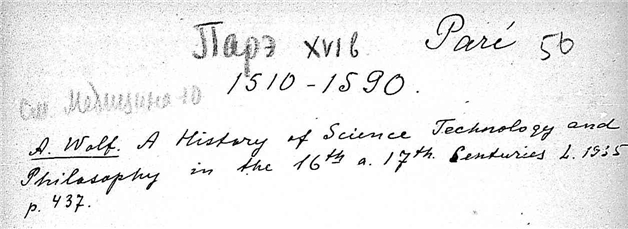 Парэ XVIв Paré 56
1510-1590.
см Медицина 10
A. Wolf. A History of Science Technology and
Philosophy in the 16th a. 17th. Centuries L. 1935
p. 437.